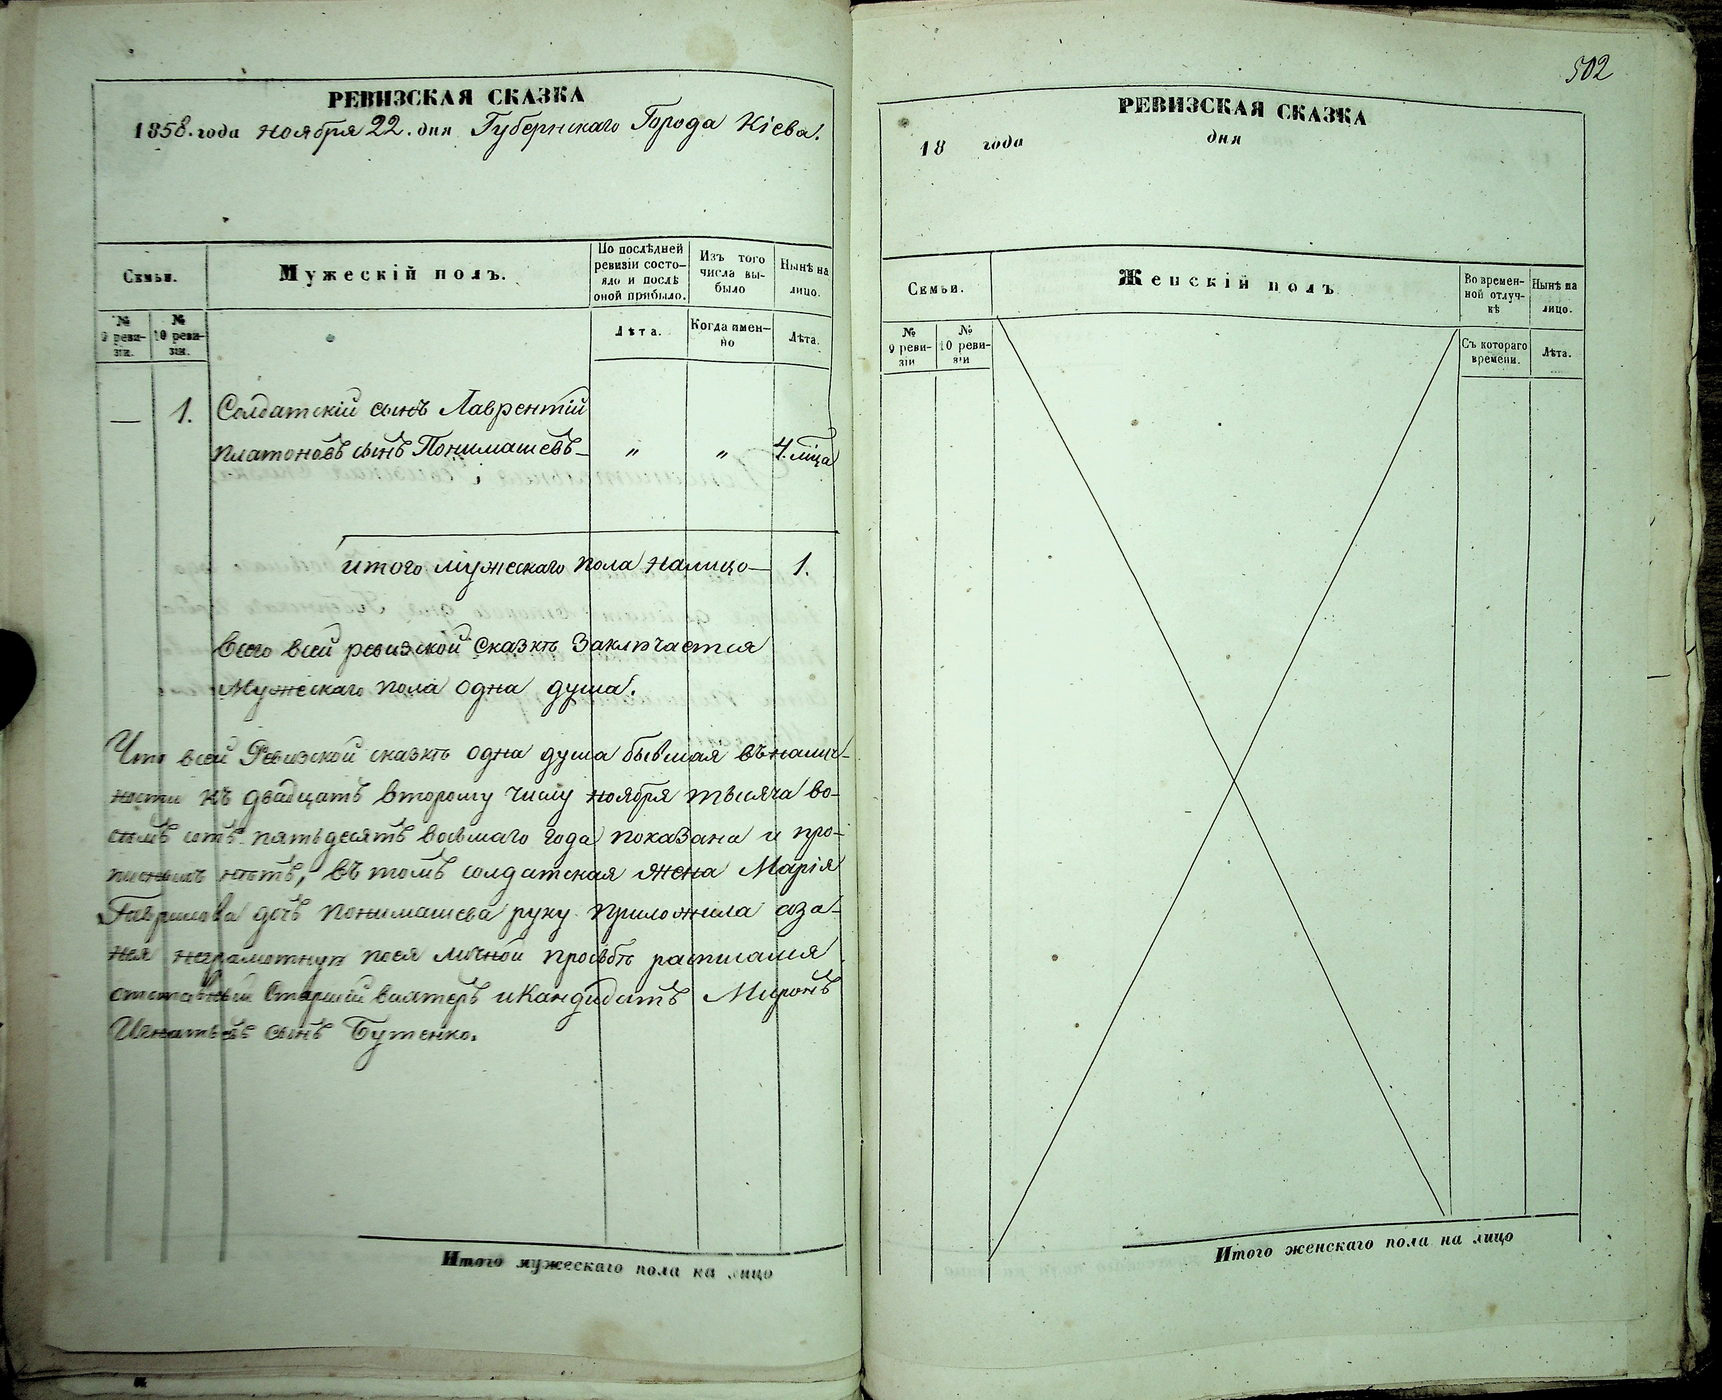 РЕВИЗСКАЯ СКАЗКА
1858. года ноября 22. дня Губернскаго Города Кіева.
Семьи.
Мужескій полъ.
По послѣдней ревизіи состо-
яло и послѣ
оной прибыло.
Изъ того
числа вы-
было
Нынѣ на
лицо.
№
9 реви-
зіи.
№
10 реви-
зіи.
Лѣта.
Когда имен-
но
Лѣта.
— 1. Солдатскій сынъ Лаврентій
Платоновъ сынъ Понимашевъ — " " 4.
итого мужескаго пола налицо — 1.
Всего всей ревизской сказкѣ Заключается
Мужескаго пола одна душа.
Что всей Ревизской сказкѣ одна душа бывшая въналич-
ности къ двадцать второму числу ноября тысяча во-
семь сотъ пятьдесятъ восьмаго года показана и про-
писныхъ нѣтъ, въ томъ солдатская жена Марія
Гаврилова дочь Понимашева руку приложила аза-
нея неграмотную поея личной просьбѣ расписался
отставный Старшій вахтеръ и Кандидатъ Миронъ
Игнатьевъ сынъ Бутенко.
Итого мужескаго пола на лицо
502
РЕВИЗСКАЯ СКАЗКА
18 года дня
Семьи.
Женскій полъ
Во времен-
ной отлуч-
кѣ
Нынѣ на
лицо.
№
9 реви-
зіи
№
10 реви-
зіи
Съ котораго
времени.
Лѣта.
Итого женскаго пола на лицо